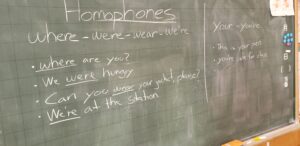 Homophones
where - were - wear - we're
• where are you?
• We were hungry.
• Can you wear your jacket, please?
• We're at the station
your - you're
• This is your pen.
• you're